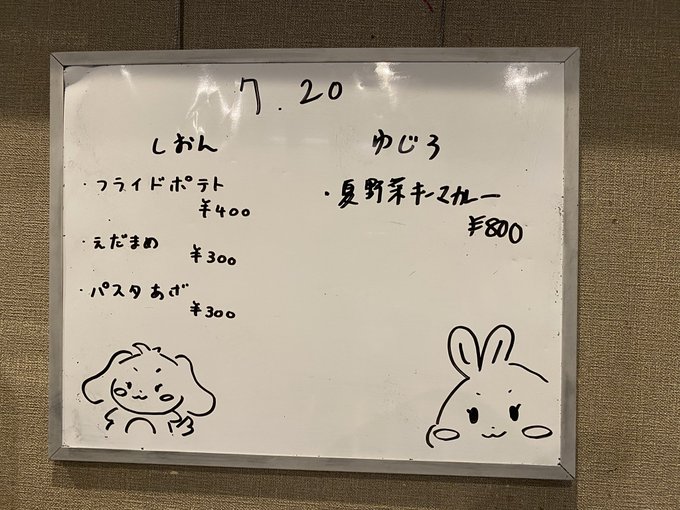 7.20
しおん
・フライドポテト
¥400
・えだまめ
¥300
・パスタあげ
¥300
ゆじろ
・夏野菜キーマカレー
¥800